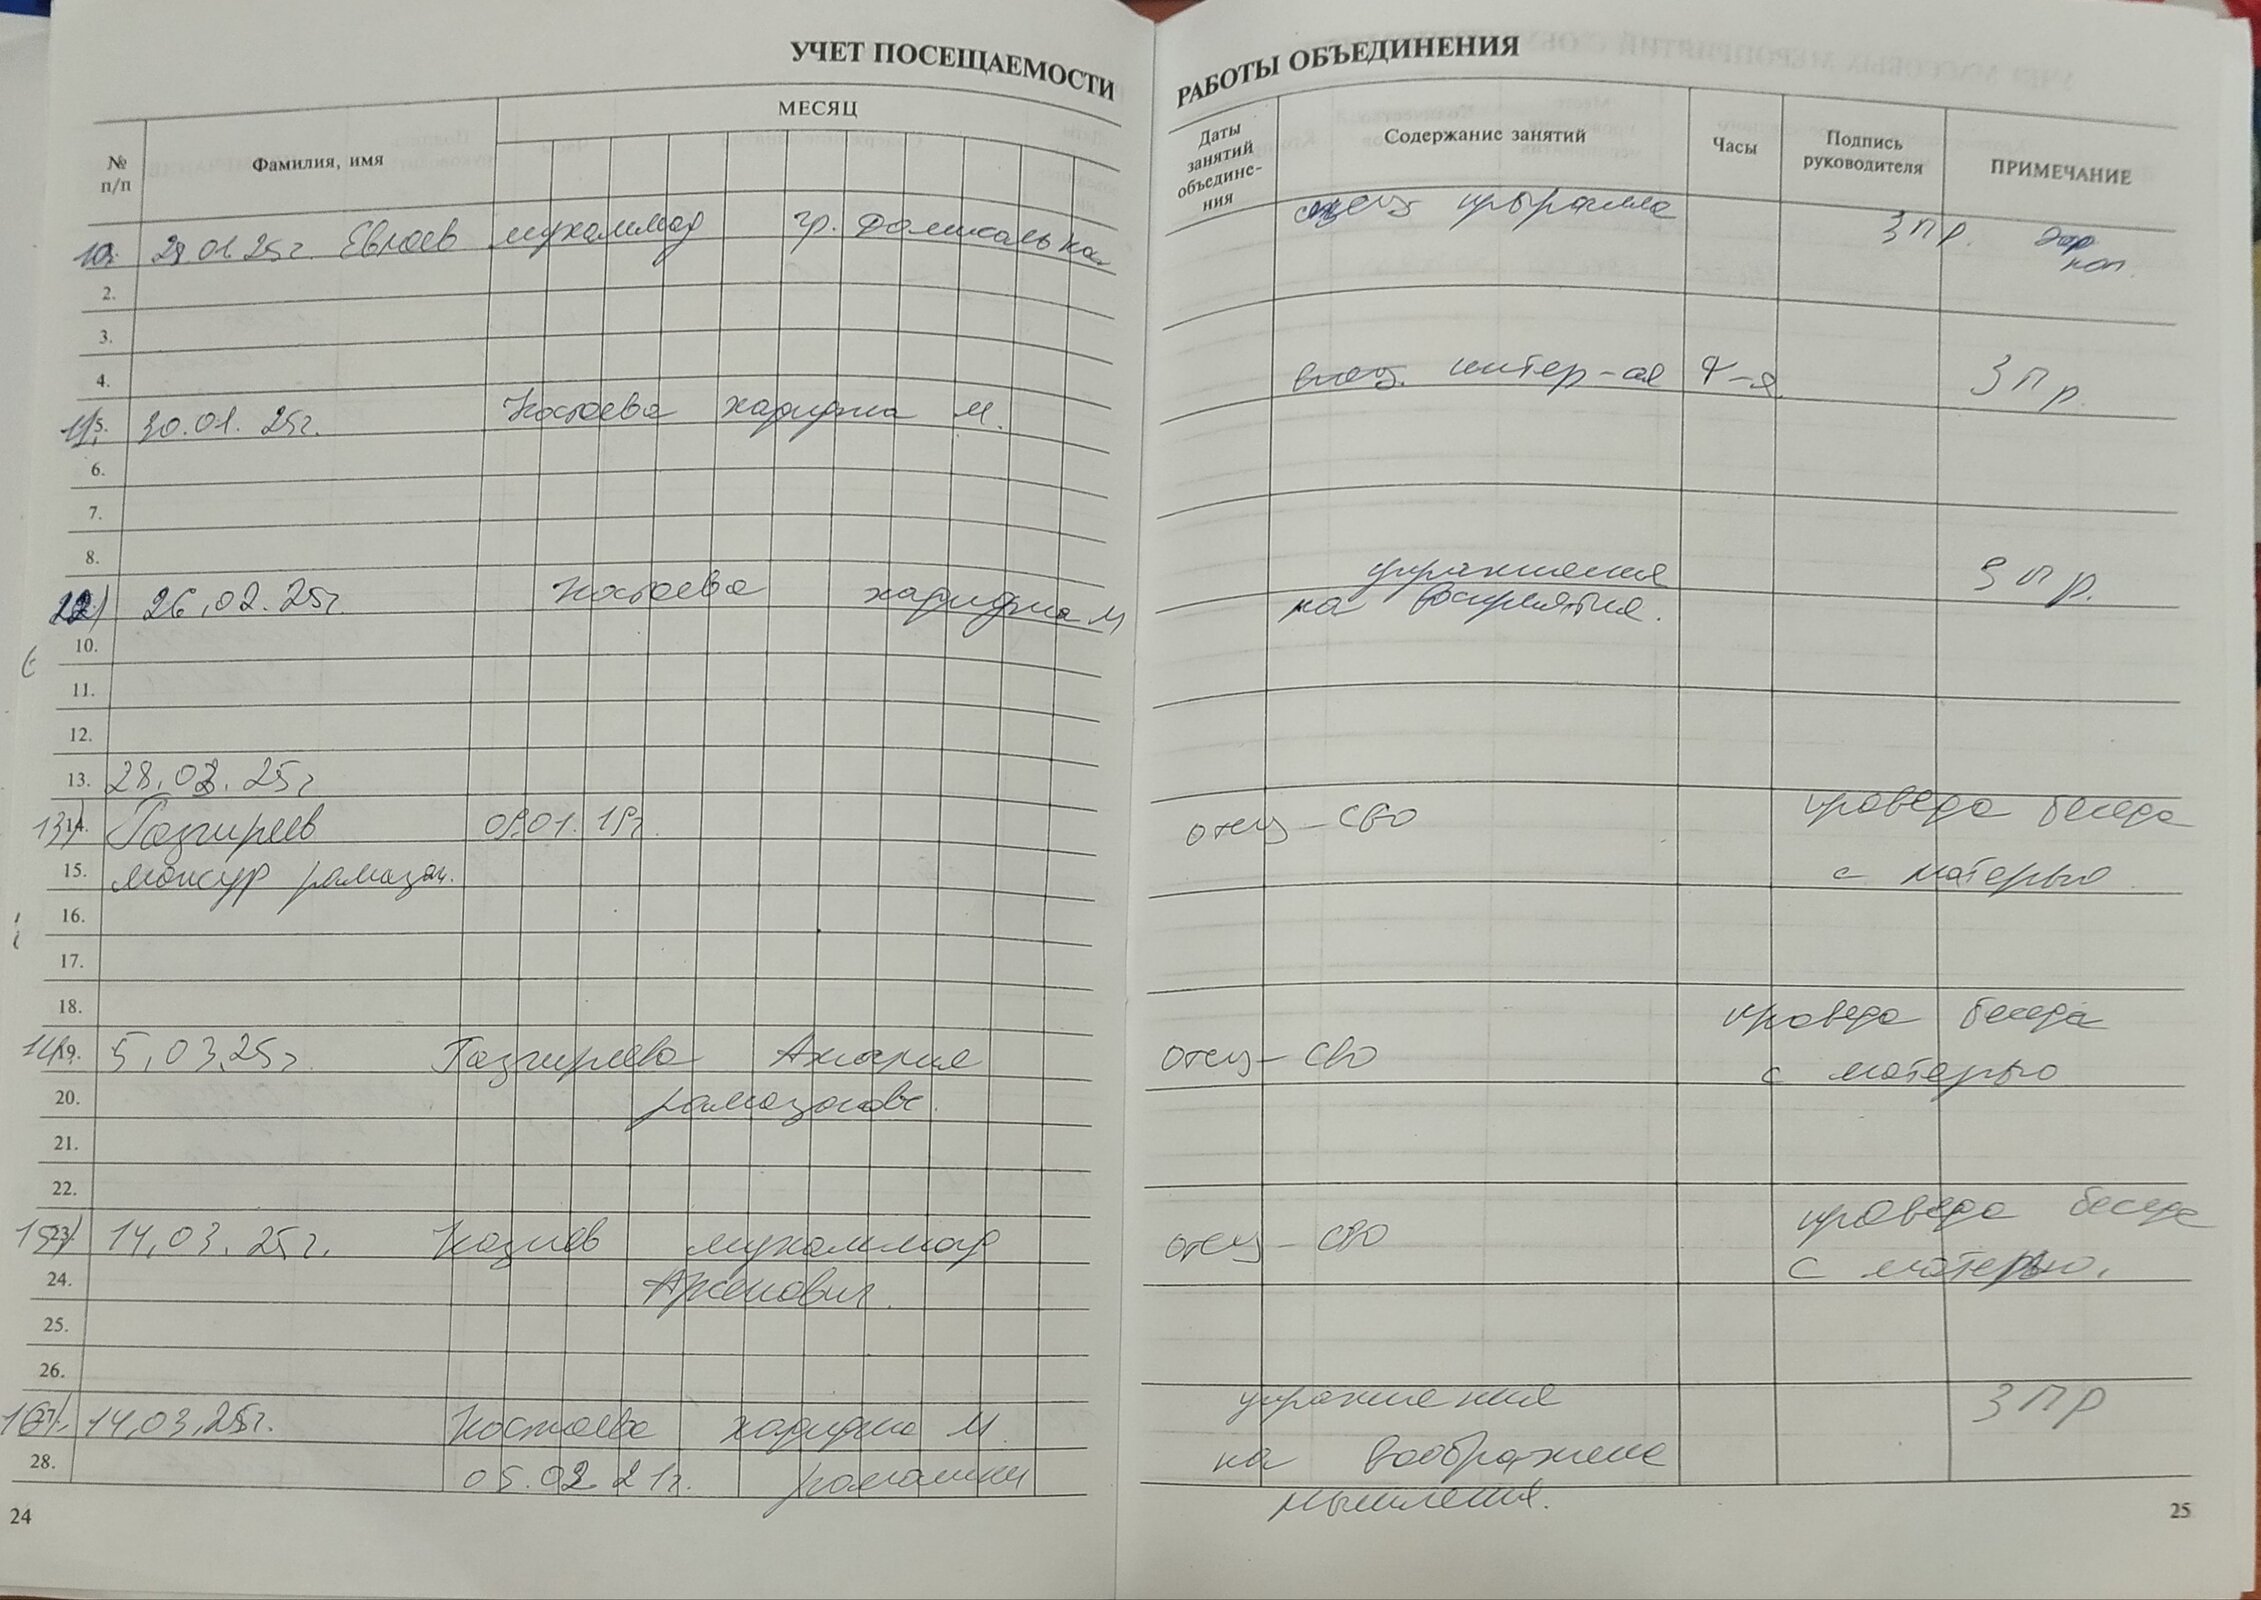 УЧЕТ ПОСЕЩАЕМОСТИ
№ п/п
Фамилия, имя
МЕСЯЦ
10. 29.01.25г. Евлоев мухаммад гр.
2.
3.
4.
11. 5. 30.01.25г. Костоева хадиджа м.
6.
7.
8.
12) 26.02.25г. Костоева хадиджа м
10.
11.
12.
13. 28.02.25г
13) 14. Газгиреев 09.01.19г.
15. мансур рамазан.
16.
17.
18.
14) 19. 5.03.25г. Газгиреева рамазановс.
20.
21.
22.
15) 23. 14.03.25г. Казиев мухаммад
24. Арсенович.
25.
26.
16) 27. 14.03.25г. Костоева хадиджа м.
28. 05.02.21г. ромашки
24
РАБОТЫ ОБЪЕДИНЕНИЯ
Даты занятий объединения
Содержание занятий
Часы
Подпись руководителя
ПРИМЕЧАНИЕ
ЗПР.
интер-ая ЗПр.
упражнения ЗПр.
на восприятие.
отец-СВО проведа беседа
с матерью
отец-СВО проведа беседа
с матерью
отец-СВО проведа беседа
с матерью.
упражнения ЗПР
на воображение
мышления.
25